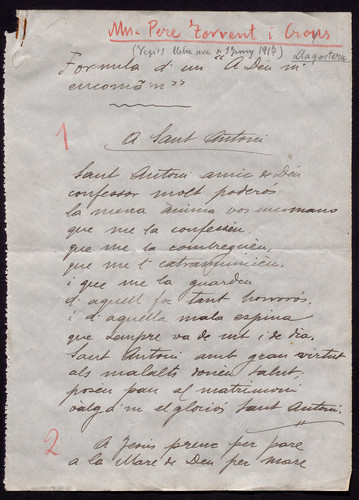 Mn. Pere Torrent i Crous
(Vegi's Ureña 1917) Llagostera
Formula d'un "A Déu m'
encomàn"
1
A Sant Antoni
Sant Antoni amic de Déu
confessor molt poderós
la meva ànima vos encomano
que me la confesseu
que me la combregueu,
que me l'extramuncieu,
i que me la guardeu
d'aquell foc tant horrorós
i d'aquella mala espina
que sempre va de nit i de dia.
Sant Antoni amb gran virtut
als malalts doneu salut,
poseu pau al matrimoni
valga'm el gloriós Sant Antoni.
2
A Jesús prenc per pare
a la Mare de Déu per mare